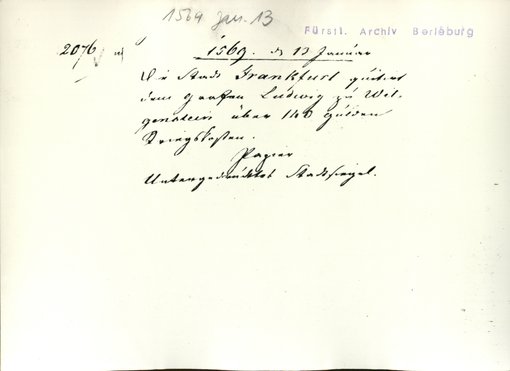 1569 Jan. 13
Fürstl. Archiv Berleburg
2076
1569. d. 13 Januar
Die Stadt Frankfurt quitirt
dem Grafen Ludwig zu Wit-
genstein über 140 Gulden
Kriegskosten.
Papier
Untergedrücktes Stadtsiegel.